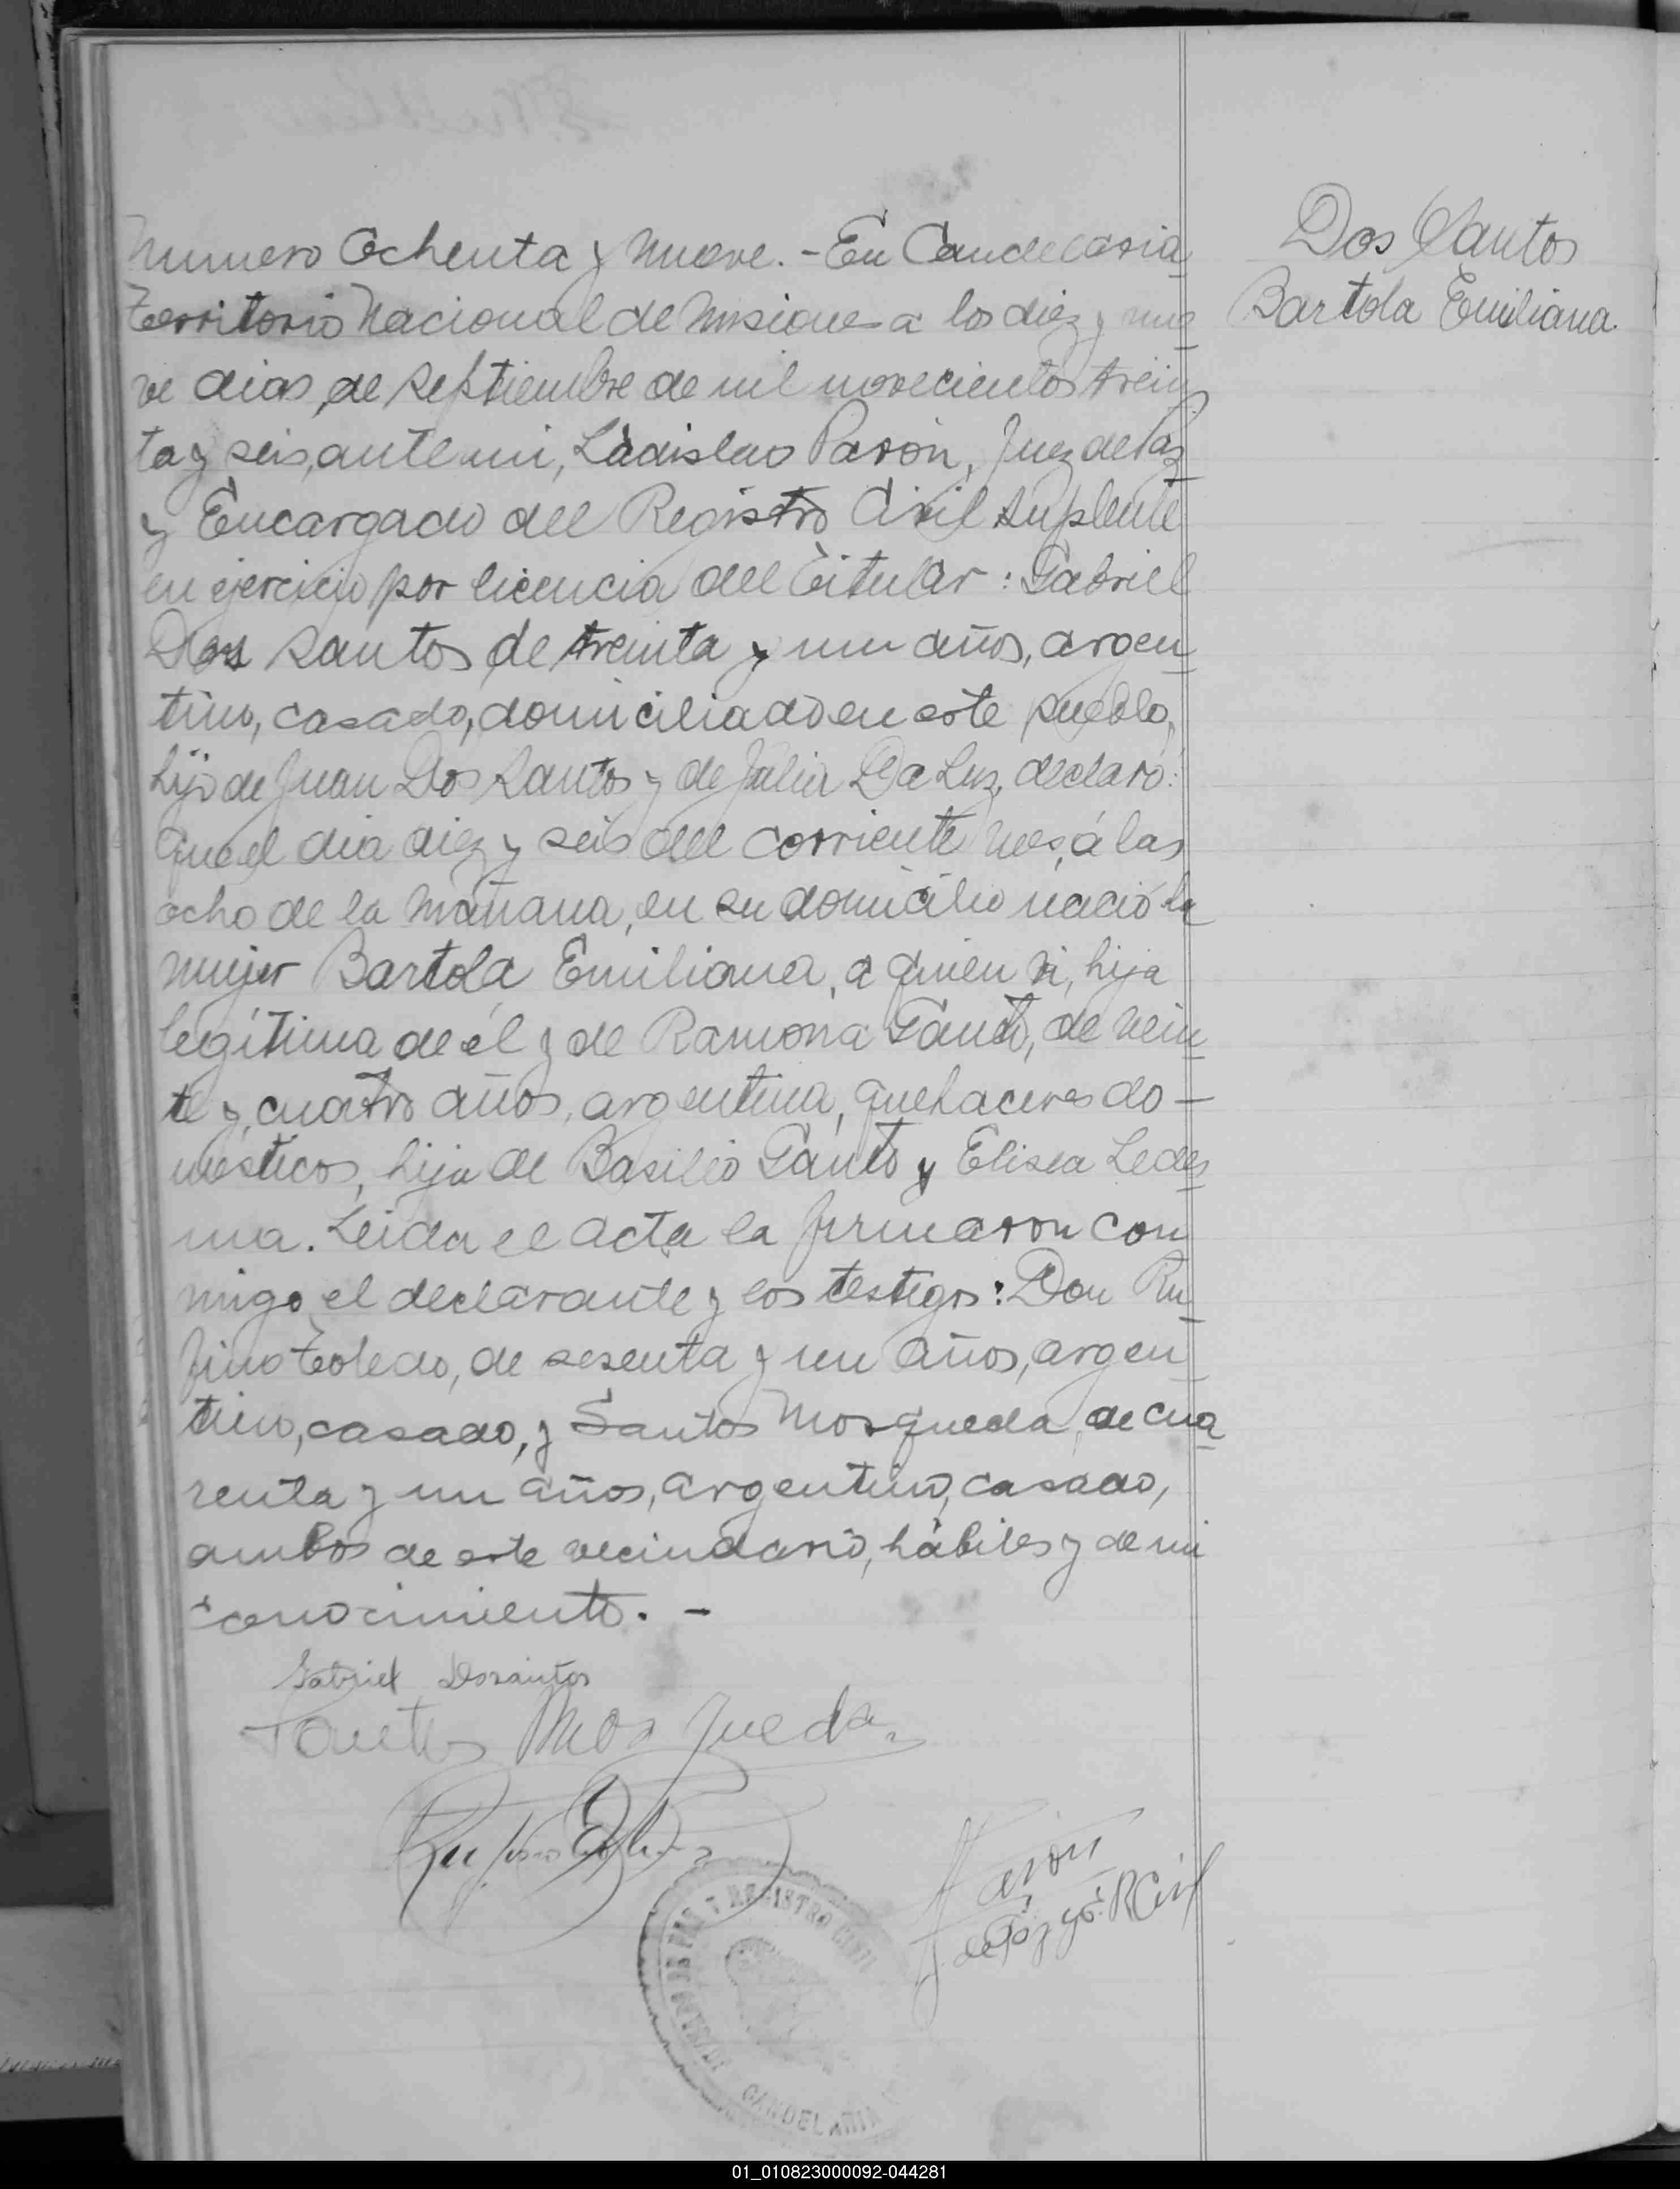 Numero Ochenta y Nueve. - En Candelaria
Territorio Nacional de Misiones a los diez y nue
ve dias, de septiembre de mil novecientos trein
ta y seis, ante mi, Ladislao Pavón, Juez de Paz
y Encargado del Registro Civil suplente
en ejercicio por licencia del titular: Gabriel
Dos Santos de treinta y un años, argen
tino, casado, domiciliado en este pueblo,
hijo de Juan Dos Santos y de Julia Da Luz, declaró:
que el dia diez y seis del corriente mes, á las
ocho de la mañana, en su domicilio nació la
mujer Bartola Emiliana, a quien vi, hija
legítima de él y de Ramona, de vein
te y cuatro años, argentina, quehaceres do-
mésticos, hija de Basilio y Elisea Ledes
ma. Leida el acta la firmaron con
migo el declarante y los testigos: Don Ru
fino Toledo, de sesenta y un años, argen
tino, casado, y Santos Mosqueda, de cua
renta y un años, argentino, casado,
ambos de este vecindario, hábiles y de mi
conocimiento. -
Dos Santos
Bartola Emiliana.
Gabriel Dosantos
Santos Mosqueda
Rufino Toledo
de Paz y R Civil
DE PAZ Y REGISTRO CIVIL
CANDELARIA
01_010823000092-044281